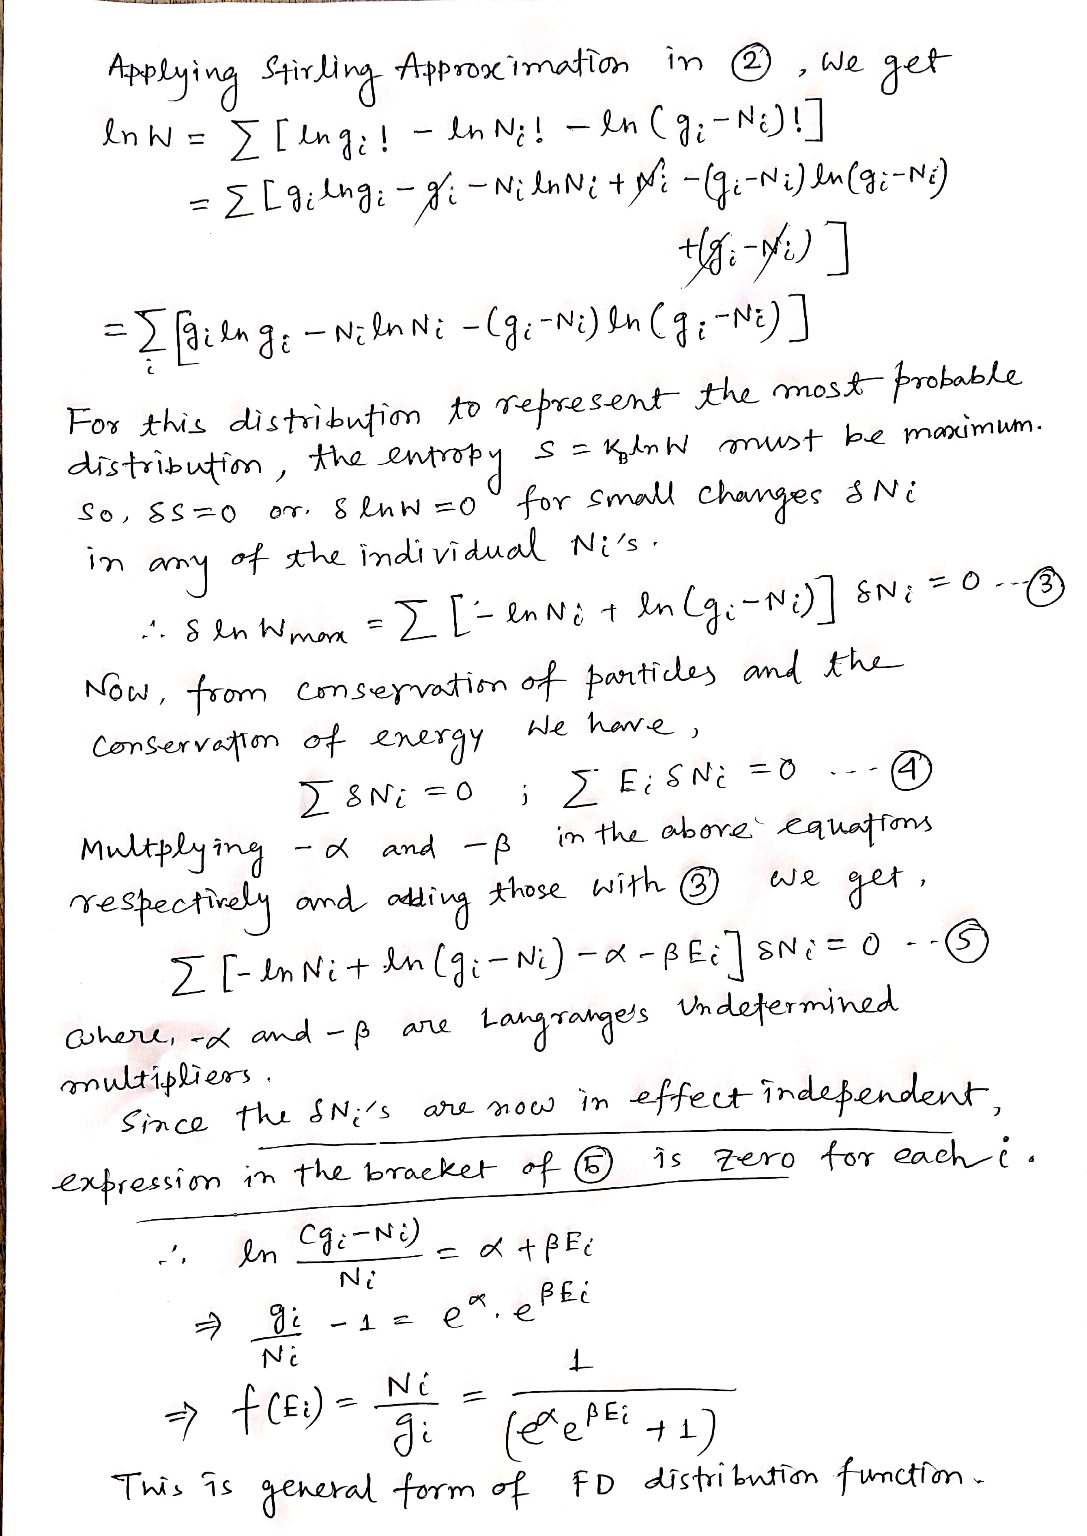 Applying Stirling Approximation in ②, we get
ln W = Σ [ln gᵢ! − ln Nᵢ! − ln (gᵢ−Nᵢ)!]
= Σ [gᵢ ln gᵢ − gᵢ − Nᵢ ln Nᵢ + Nᵢ − (gᵢ−Nᵢ) ln (gᵢ−Nᵢ)
+(gᵢ−Nᵢ)]
= Σᵢ [gᵢ ln gᵢ − Nᵢ ln Nᵢ − (gᵢ−Nᵢ) ln (gᵢ−Nᵢ)]
For this distribution to represent the most probable
distribution, the entropy S = K_B ln W must be maximum.
So, δS=0 or. δ ln W = 0 for small changes δNᵢ
in any of the individual Nᵢ's.
∴ δ ln Wmax = Σ [− ln Nᵢ + ln (gᵢ−Nᵢ)] δNᵢ = 0 ---③
Now, from conservation of particles and the
conservation of energy we have,
Σ δNᵢ = 0 ; Σ Eᵢ δNᵢ = 0 --- ④
Multplying −α and −β in the above equations
respectively and adding those with ③ we get,
Σ [− ln Nᵢ + ln (gᵢ−Nᵢ) − α − βEᵢ] δNᵢ = 0 --⑤
where, −α and −β are Langrange's Undetermined
multipliers.
Since the δNᵢ's are now in effect independent,
expression in the bracket of ⑤ is zero for each i.
∴ ln (gᵢ−Nᵢ)/Nᵢ = α + βEᵢ
⇒ gᵢ/Nᵢ − 1 = e^α . e^βEᵢ
⇒ f(Eᵢ) = Nᵢ/gᵢ = 1/(e^α e^βEᵢ + 1)
This is general form of FD distribution function.